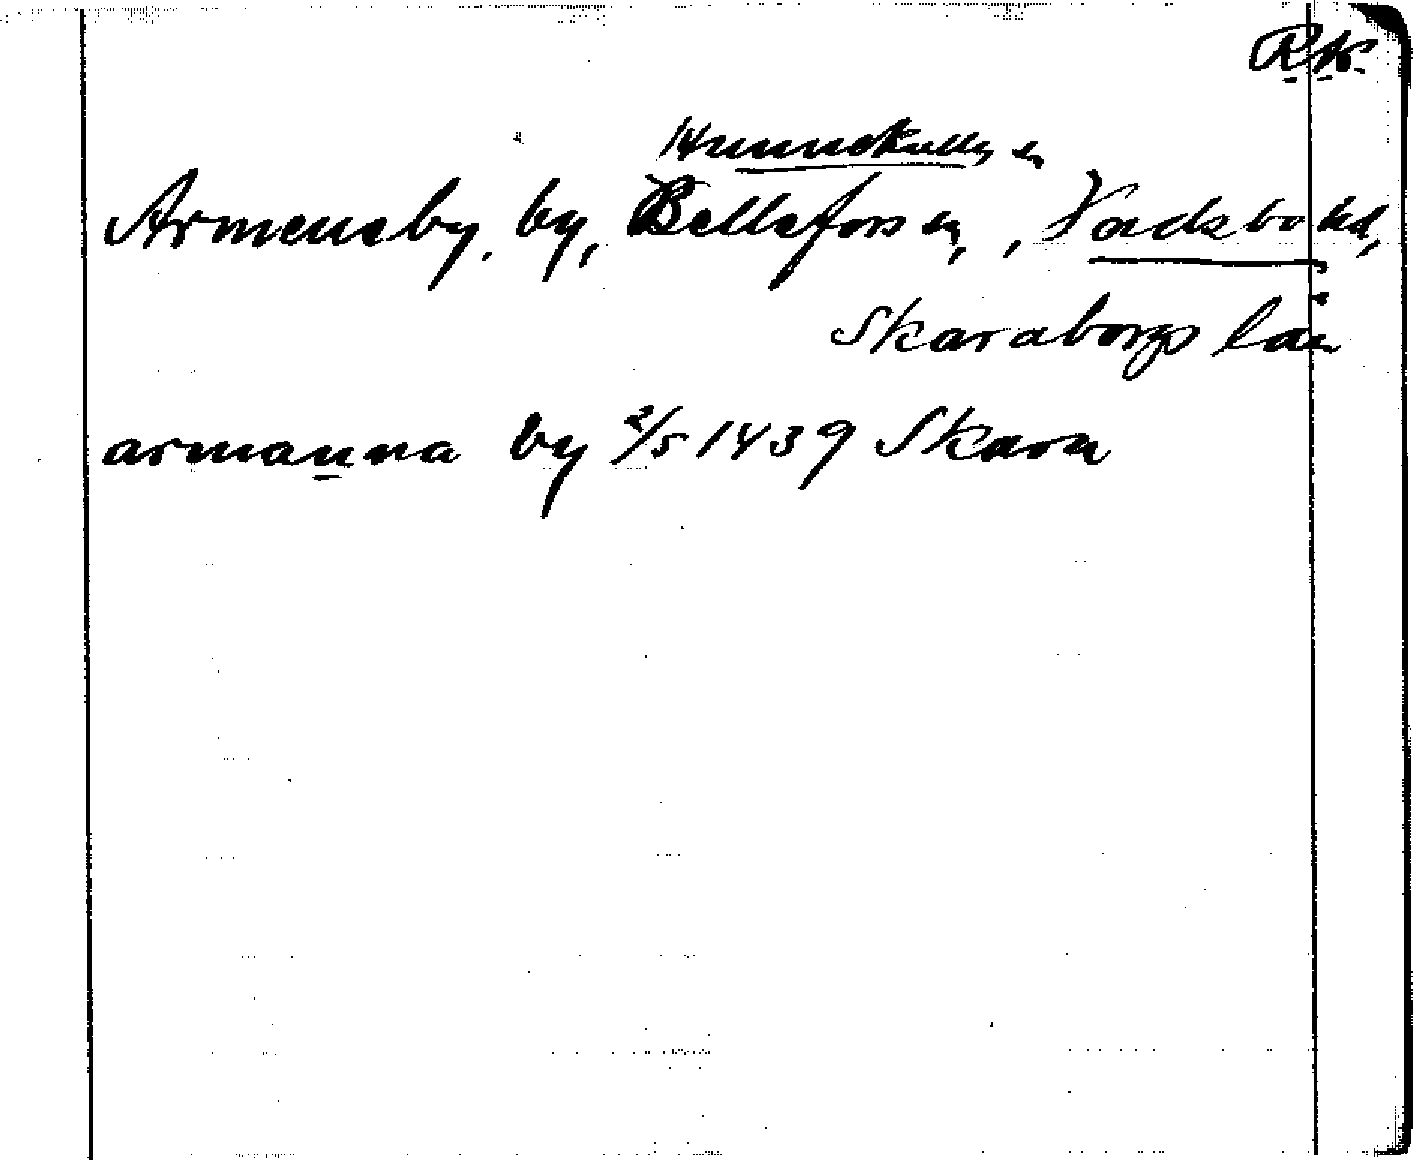 RK.
Hunnekulla sn
Armeneby, by, Bellefors sn, Vadsbo hd,
Skaraborgs län
armanna by 2/5 1439 Skara